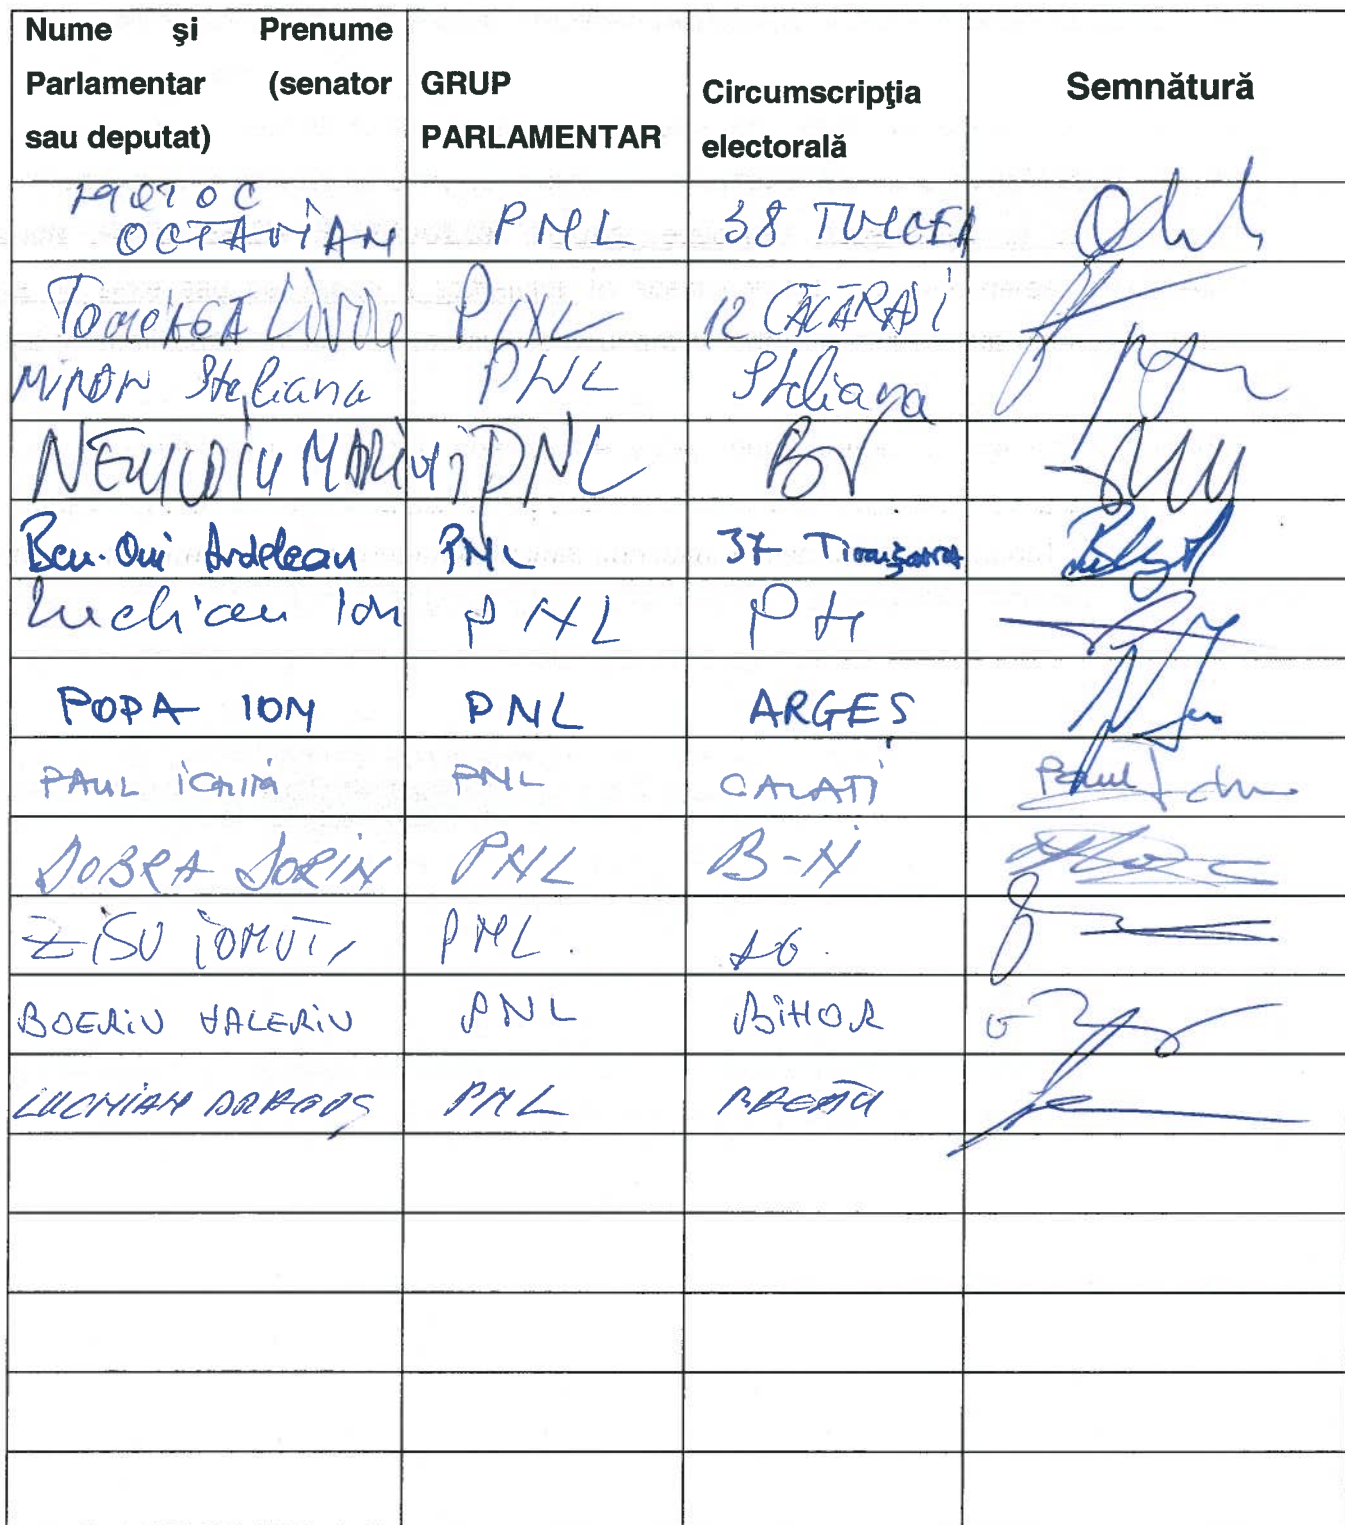 Nume şi Prenume
Parlamentar (senator
sau deputat)
GRUP
PARLAMENTAR
Circumscripţia
electorală
Semnătură
MOTOC
OCTAVIAN PNL 38 TULCEA
PNL 12 CĂLĂRAȘI
MIRON Steliana PNL Steliana
PNL BV
Ben-Oni Ardelean PNL 37 Timișoara
Luchian Ion PNL PH
POPA ION PNL ARGEȘ
PAUL IONIȚĂ PNL GALAȚI Paul
DOBRA DORIN PNL B-N
ZISU IONUȚ PNL
BOERIU VALERIU PNL BIHOR
LUCHIAN DRAGOȘ PNL